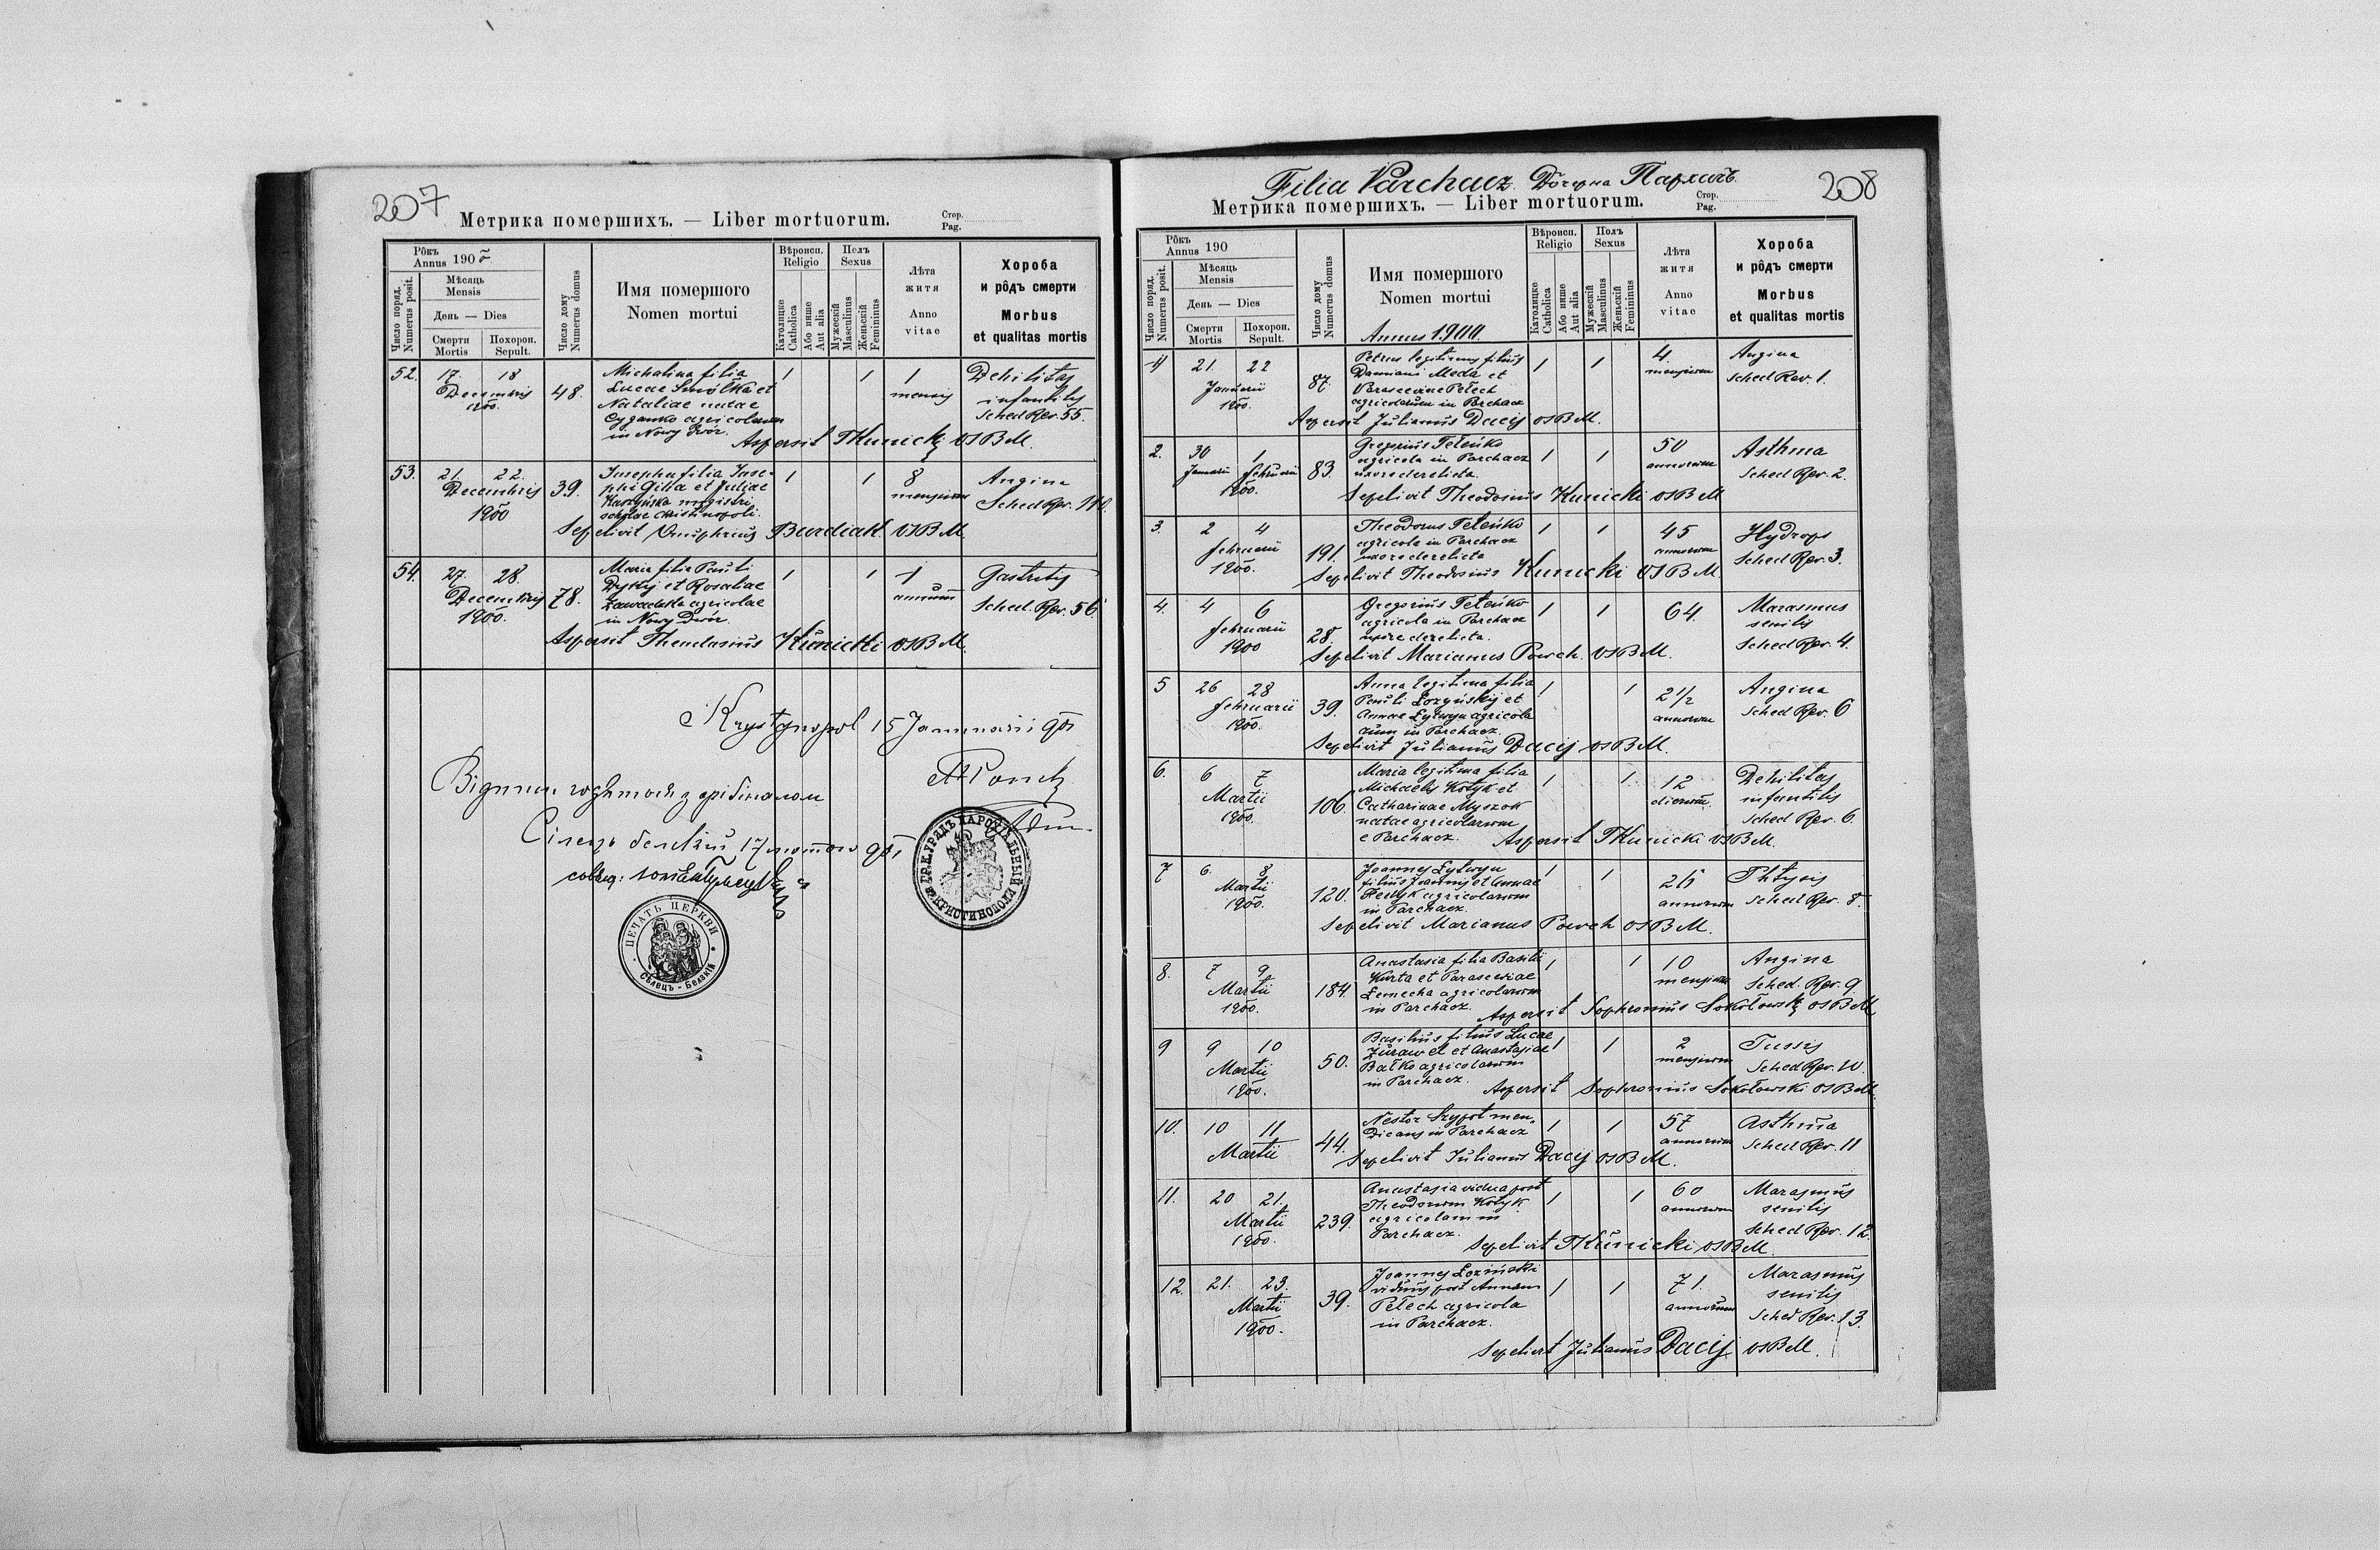 207
Метрика помершихъ. — Liber mortuorum.
Стор.
Pag.
Рôкъ
Annus 1900
Мѣсяць
Mensis
День — Dies
Смерти
Mortis
Похорон.
Sepult.
Число поряд.
Numerus posit.
Число дому
Numerus domus
Имя помершого
Nomen mortui
Вѣроисп.
Religio
Католицке
Catholica
Або инше
Aut alia
Полъ
Sexus
Мужескій
Masculinus
Женьскій
Femininus
Лѣта
житя
Anno
vitae
Хороба
и рôдъ смерти
Morbus
et qualitas mortis
52. 17. 18 Decembris 1900. 48.
Michalina filia
Lucae Smólka et
Nataliae natae
Cyganko agricolarum
in Nowy Dwór.
1 1 1 mensis
Debilitas
infantilis
Sched Rev. 55.
Aspersit TKunicki OSBM.
53. 21. 22. Decembris 1900 39.
Josepha filia Jose-
phi Gilla et Juliae
magistri
scholae Christinopoli.
1 1 8 mensium
Angina
Sched Rev. 110.
Sepelivit Onuphrius Burdiak OSBM.
54. 27. 28. Decembris 1900. 78.
Maria filia Pauli
Dykyj et Rosaliae
Zawadska agricolae
in Nowy Dwór.
1 1 1 annum
Gastritis
Sched. Rev. 56.
Aspersit Theodosius Kunicki OSBM.
Krystynopol 15 Januarii 901
Сілець белзкий 17 901
ГР. К. УРЯДЪ ПАРОХІАЛЬНЫЙ КРИСТИНОПОЛИ
ПЕЧАТЬ ЦЕРКВИ
Сѣлець - Белзкій
208
Filia Parchacz. Дочерна Пархачь.
Метрика помершихъ. — Liber mortuorum.
Стор.
Pag.
Рôкъ
Annus 190
Мѣсяць
Mensis
День — Dies
Смерти
Mortis
Похорон.
Sepult.
Число поряд.
Numerus posit.
Число дому
Numerus domus
Имя помершого
Nomen mortui
Annus 1900.
Вѣроисп.
Religio
Католицке
Catholica
Або инше
Aut alia
Полъ
Sexus
Мужескій
Masculinus
Женьскій
Femininus
Лѣта
житя
Anno
vitae
Хороба
и рôдъ смерти
Morbus
et qualitas mortis
1 21. 22 Januarii 1900. 87.
Petrus legitimus filius
Damiani Meda et
Parasceviae Pełech
agricolarum in Parchacz
1 1 4. mensium
Angina
Sched Rev. 1.
Aspersit Julianus Dacij OSBM.
2. 30 Januarii 1 Februarii 1900. 83
Gregorius Teteńko
agricola in Parchacz
uxore derelicta.
1 1 50 annorum
Asthma
Sched Rev. 2.
Sepelivit Theodosius Kunicki OSBM
3. 2 4 Februarii 1900. 191.
Theodorus Teteńko
agricola in Parchacz
uxore derelicta
1 1 45 annorum
Hydrops
Sched Rev. 3.
Sepelivit Theodosius Kunicki OSBM.
4. 4 6 Februarii 1900 28.
Gregorius Teteńko
agricola in Parchacz
uxore derelicta.
1 1 64.
Marasmus
senilis
Sched Rev. 4.
Sepelivit Marianus Powch. OSBM.
5 26 28 Februarii 1900. 39.
Anna legitima filia
Pauli Łozyńskij et
Annae Łytwyn agricola
rum in Parchacz.
1 1 2½ annorum
Angina
Sched Rev. 6
Sepelivit Julianus Dacij OSBM.
6. 6 7 Martii 1900. 106.
Maria legitima filia
Michaelis Kotyk et
Catharinae Myszok
natae agricolarum
e Parchacz.
1 1 12 dierum.
Debilitas
infantilis
Sched Rev. 6.
Aspersit TKunicki OSBM.
7 6. 8 Martii 1900. 120.
Joannes Łytwyn
filius Joannis et Annae
agricolarum
in Parchacz.
1 1 26 annorum
Phtysis
Sched Rev. 8.
Sepelivit Marianus Powch OSBM.
8. 7 9 Martii 1900. 184.
Anastasia filia Basilii
Kurta et Parasceviae
Łemecha agricolarum
in Parchacz.
1 1 10 mensium
Angina
Sched. Rev. 9.
Aspersit Sophronius Sokołowski OSBM
9 9 10 Martii 1900. 50.
Basilius filius Lucae
Żurawel et Anastasiae
Bałko agricolarum
in Parchacz.
1 1 2 mensium
Tussis
Sched Rev. 10.
Aspersit Sophronius Sokołowski OSBM.
10. 10 11 Martii 44.
Nestor Szypot men„
dicans in Parchacz
1 1 57 annorum
Asthma
Sched Rev. 11
Sepelivit Julianus Dacij OSBM.
11. 20 21. Martii 1900. 239.
Anastasia vidua post
Theodorum Kotyk
agricolam in
Parchacz.
1 1 60 annorum
Marasmus
senilis
Sched Rev. 12.
Sepelivit TKunicki OSBM
12. 21. 23. Martii 1900. 39.
Joannes Łoziński
viduus post Annam
Pełech agricola
in Parchacz.
1 1 71. annorum
Marasmus
senilis
Sched Rev. 13.
Sepelivit Julianus Dacij OSBM.